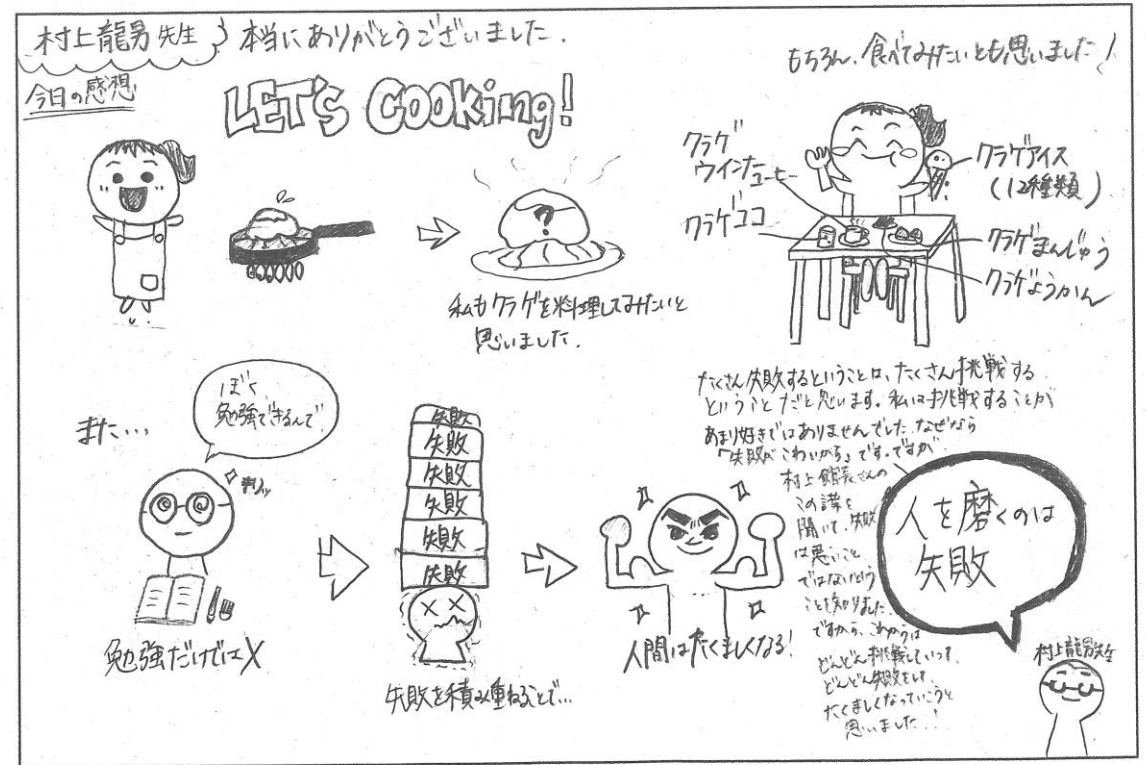 村上龍男先生
本当にありがとうございました.
今日の感想
LET's Cooking!
もちろん、食べてみたいとも思いました!
クラゲ
ウインナーコーヒー
クラゲココ
クラゲアイス
(12種類)
クラゲまんじゅう
クラゲようかん
私もクラゲを料理してみたいと
思いました.
また...
ぼく
勉強できるんで
キリッ
勉強だけでは×
失敗
失敗
失敗
失敗
失敗
失敗
失敗を積み重ねることで...
人間はたくましくなる!
たくさん失敗するということは、たくさん挑戦する
ということだと思います。私は挑戦することが
あまり好きではありませんでした。なぜなら
「失敗がこわいから」です。ですが
村上館長さんの
この講を
聞いて、失敗
は悪いこと
ではないという
ことを知りました.
ですから、これからは
どんどん挑戦していって、
どんどん失敗をして、
たくましくなっていこうと
思いました..!
人を磨くのは
失敗
村上龍男先生